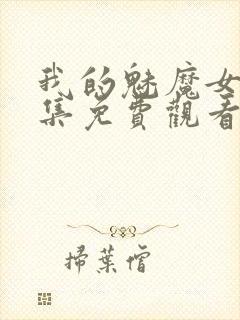 我的魅魔女
集免費觀看
掃葉僧